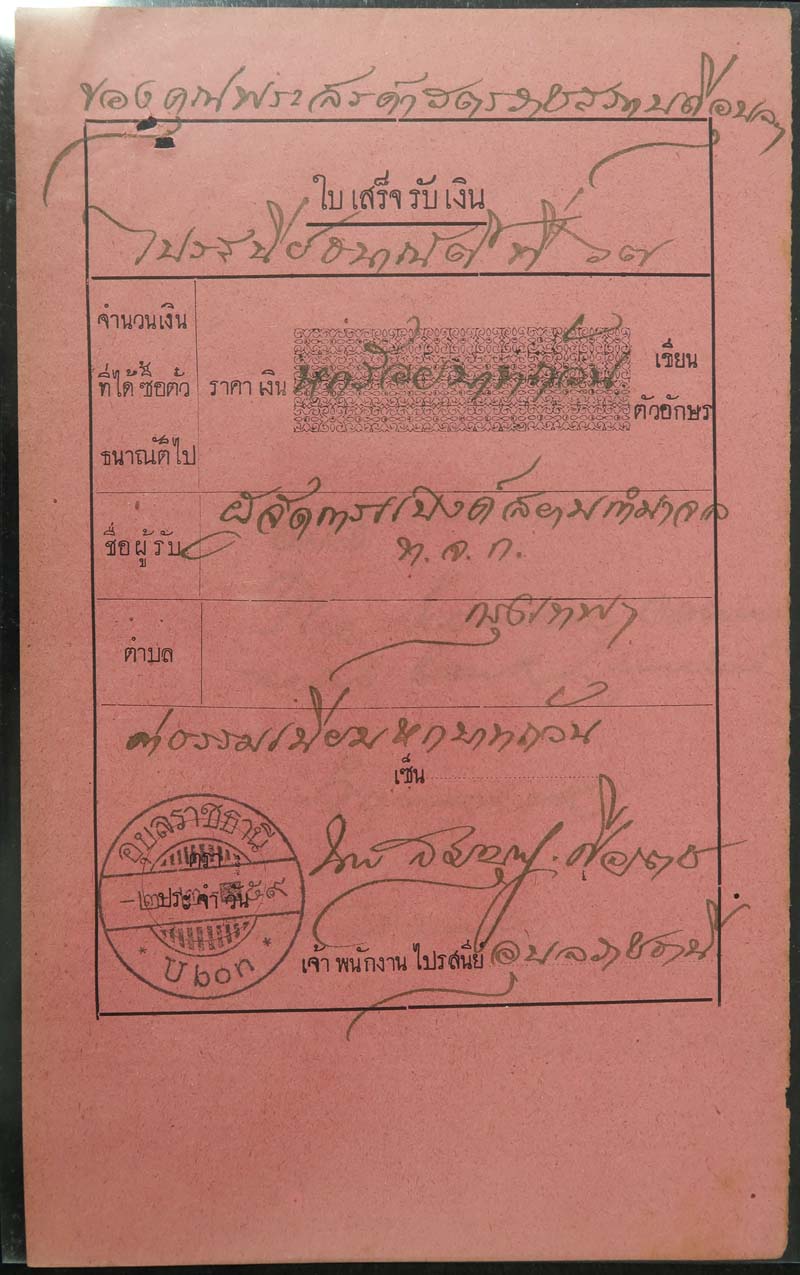 ของคุณพระ
ใบเสร็จรับเงิน
ไปรสนีย์ธนาณัติ ที่ ๖๗
จำนวนเงิน
ที่ได้ซื้อตั๋ว
ธนาณัติไป
ราคา เงิน หกร้อยบาทถ้วน
เขียน
ตัวอักษร
ชื่อผู้รับ
ผู้จัดการแบงค์สยามกัมมาจล
ท.จ.ก.
ตำบล
กรุงเทพฯ
ค่าธรรมเนียมหกบาทถ้วน
เซ็น
อุบลราชธานี
ตรา
ประจำวัน
Ubon
เจ้าพนักงานไปรสนีย์ อุบลราชธานี